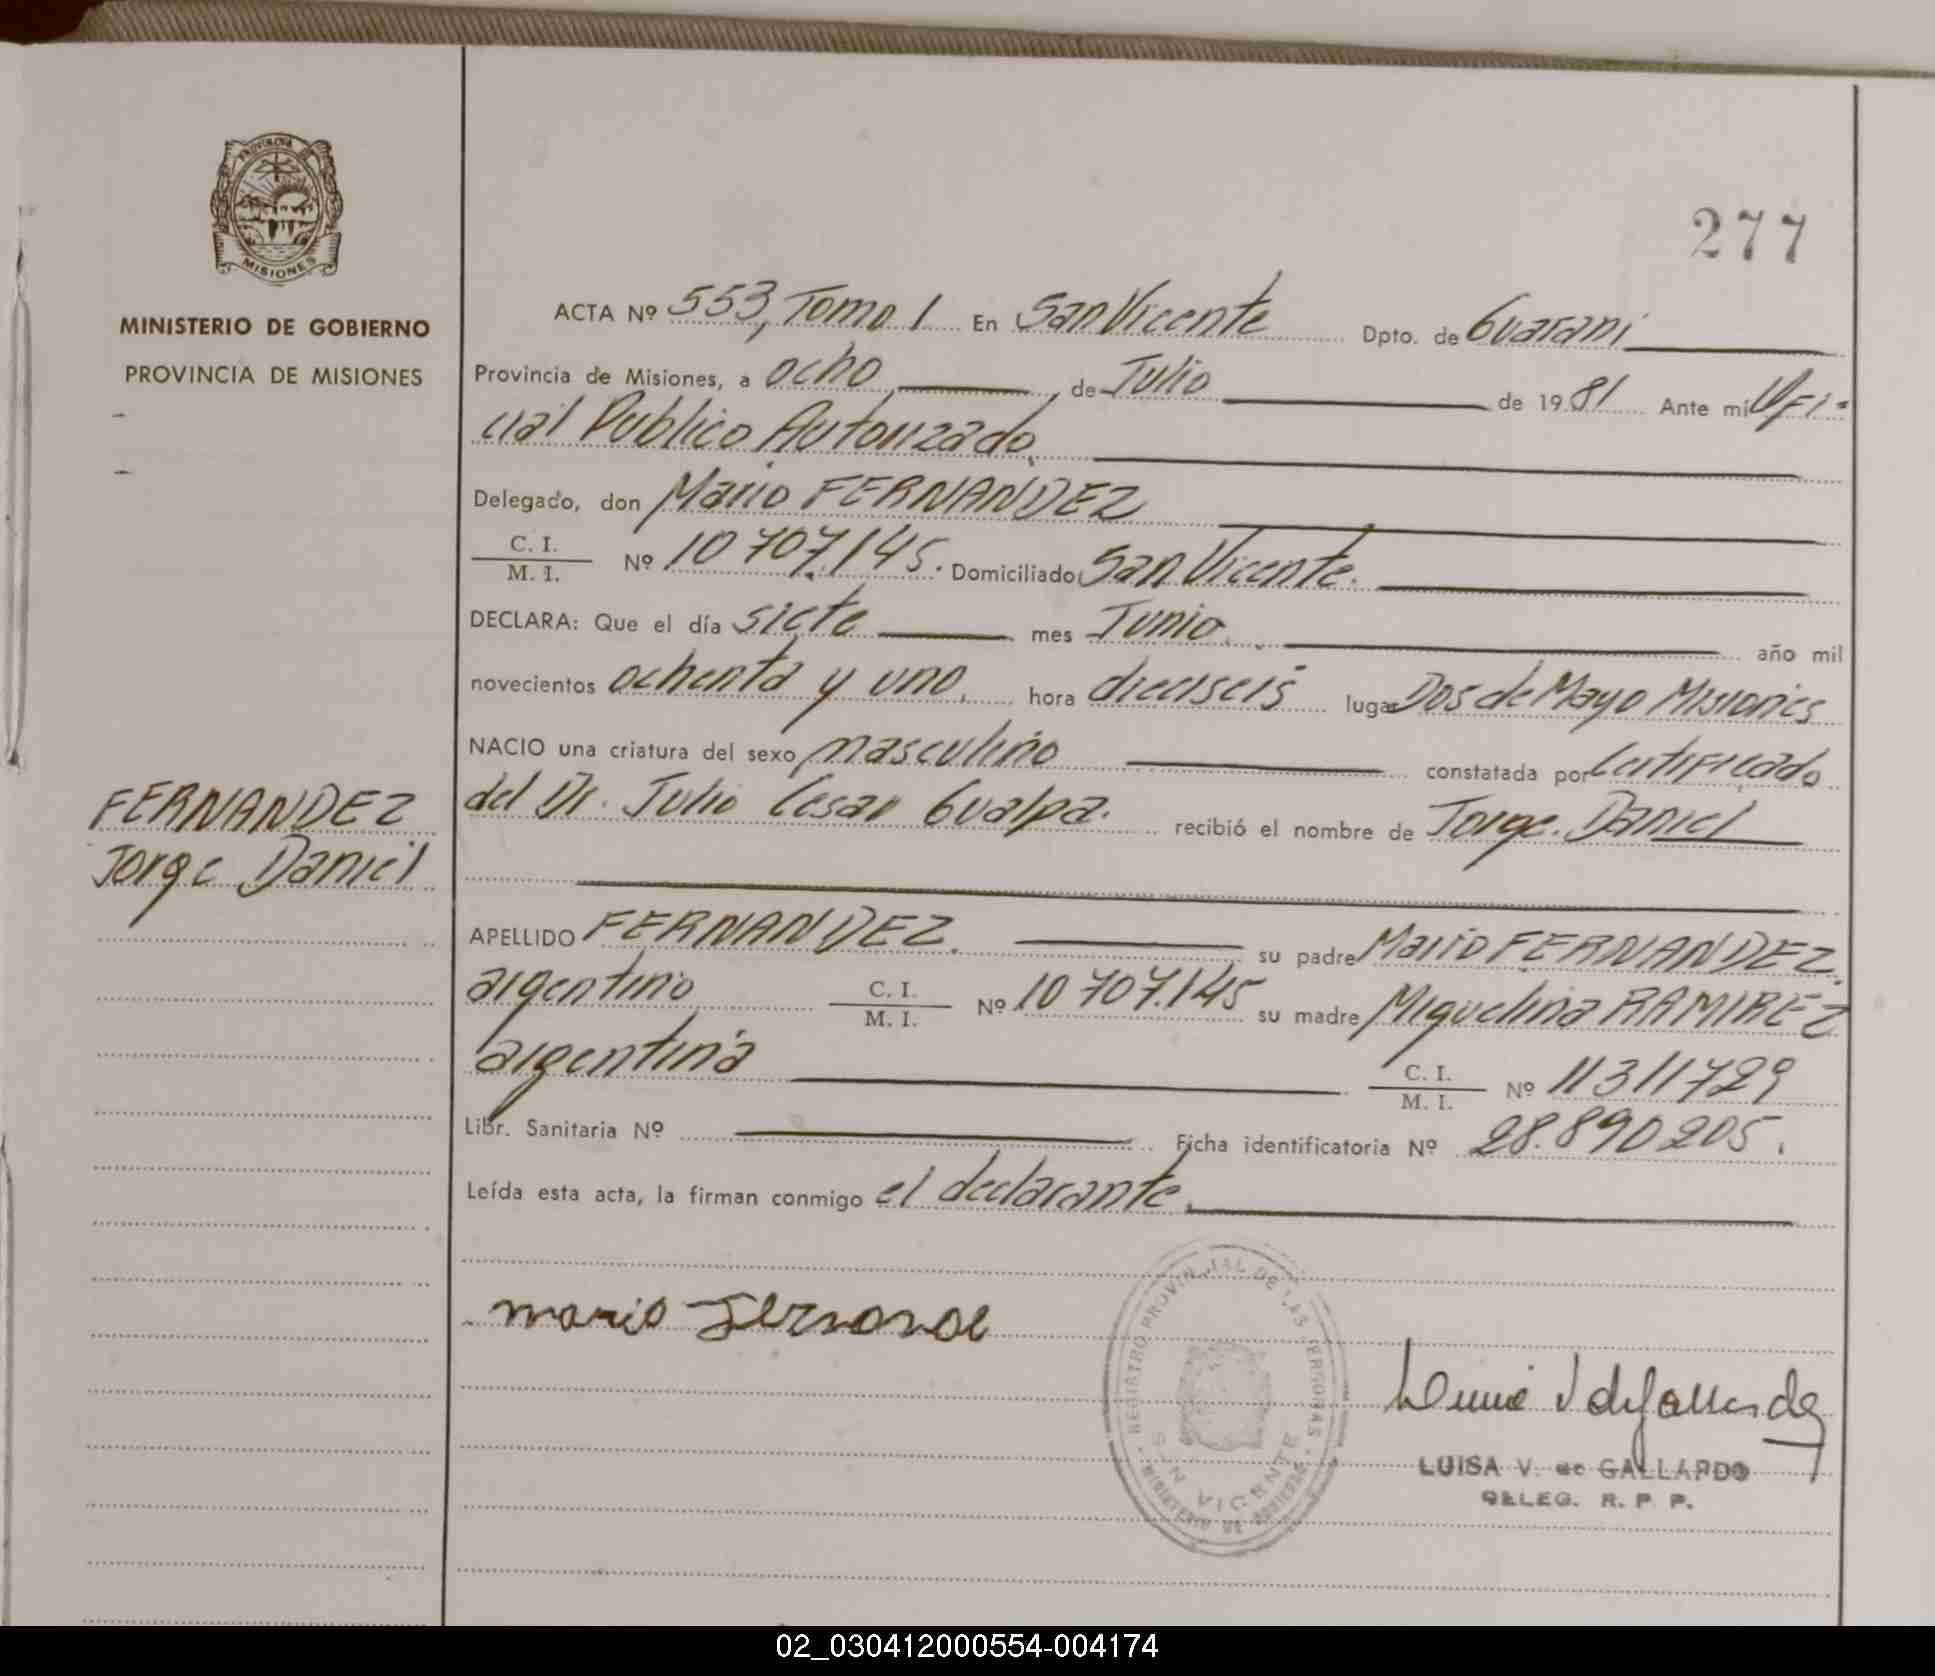 PROVINCIA DE
MISIONES
MINISTERIO DE GOBIERNO
PROVINCIA DE MISIONES
277
ACTA Nº 553, Tomo I En San Vicente Dpto. de Guarani
Provincia de Misiones, a ocho de Julio de 1981 Ante mí Ofi-
cial Publico Autorizado,
Delegado, don Mario FERNANDEZ
C. I.
M. I. Nº 10 707.145. Domiciliado San Vicente.
DECLARA: Que el día siete mes Junio, año mil
novecientos ochenta y uno, hora dieciseis lugar Dos de Mayo Misiones
NACIO una criatura del sexo masculino constatada por Certificado
del Dr. Julio Cesar Gualpa. recibió el nombre de Jorge Daniel
FERNANDEZ
Jorge Daniel
APELLIDO FERNANDEZ. su padre Mario FERNANDEZ.
argentino C. I.
M. I. Nº 10 707.145 su madre Miguelina RAMIREZ
argentina C. I.
M. I. Nº 11311729
Libr. Sanitaria Nº Ficha identificatoria Nº 28.890205.
Leída esta acta, la firman conmigo el declarante.
mario
REGISTRO PROVINCIAL DE LAS PERSONAS
SAN VICENTE
MINISTERIO DE GOBIERNO
LUISA V. de GALLARDO
DELEG. R. P. P.
02_030412000554-004174